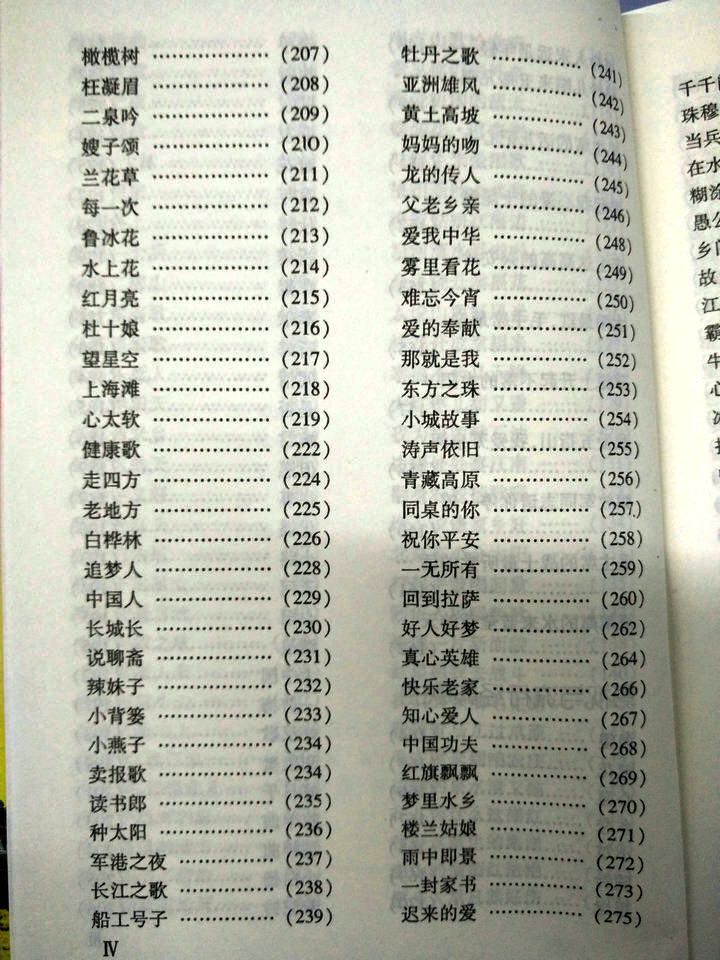 橄榄树 ……………… (207)
枉凝眉 ……………… (208)
二泉吟 ……………… (209)
嫂子颂 ……………… (210)
兰花草 ……………… (211)
每一次 ……………… (212)
鲁冰花 ……………… (213)
水上花 ……………… (214)
红月亮 ……………… (215)
杜十娘 ……………… (216)
望星空 ……………… (217)
上海滩 ……………… (218)
心太软 ……………… (219)
健康歌 ……………… (222)
走四方 ……………… (224)
老地方 ……………… (225)
白桦林 ……………… (226)
追梦人 ……………… (228)
中国人 ……………… (229)
长城长 ……………… (230)
说聊斋 ……………… (231)
辣妹子 ……………… (232)
小背篓 ……………… (233)
小燕子 ……………… (234)
卖报歌 ……………… (234)
读书郎 ……………… (235)
种太阳 ……………… (236)
军港之夜 …………… (237)
长江之歌 …………… (238)
船工号子 …………… (239)
牡丹之歌 …………… (241)
亚洲雄风 …………… (242)
黄土高坡 …………… (243)
妈妈的吻 …………… (244)
龙的传人 …………… (245)
父老乡亲 …………… (246)
爱我中华 …………… (248)
雾里看花 …………… (249)
难忘今宵 …………… (250)
爱的奉献 …………… (251)
那就是我 …………… (252)
东方之珠 …………… (253)
小城故事 …………… (254)
涛声依旧 …………… (255)
青藏高原 …………… (256)
同桌的你 …………… (257)
祝你平安 …………… (258)
一无所有 …………… (259)
回到拉萨 …………… (260)
好人好梦 …………… (262)
真心英雄 …………… (264)
快乐老家 …………… (266)
知心爱人 …………… (267)
中国功夫 …………… (268)
红旗飘飘 …………… (269)
梦里水乡 …………… (270)
楼兰姑娘 …………… (271)
雨中即景 …………… (272)
一封家书 …………… (273)
迟来的爱 …………… (275)
Ⅳ
千千
珠穆
当兵
在水
糊涂
愚公
乡
故
江
霸
牛
心